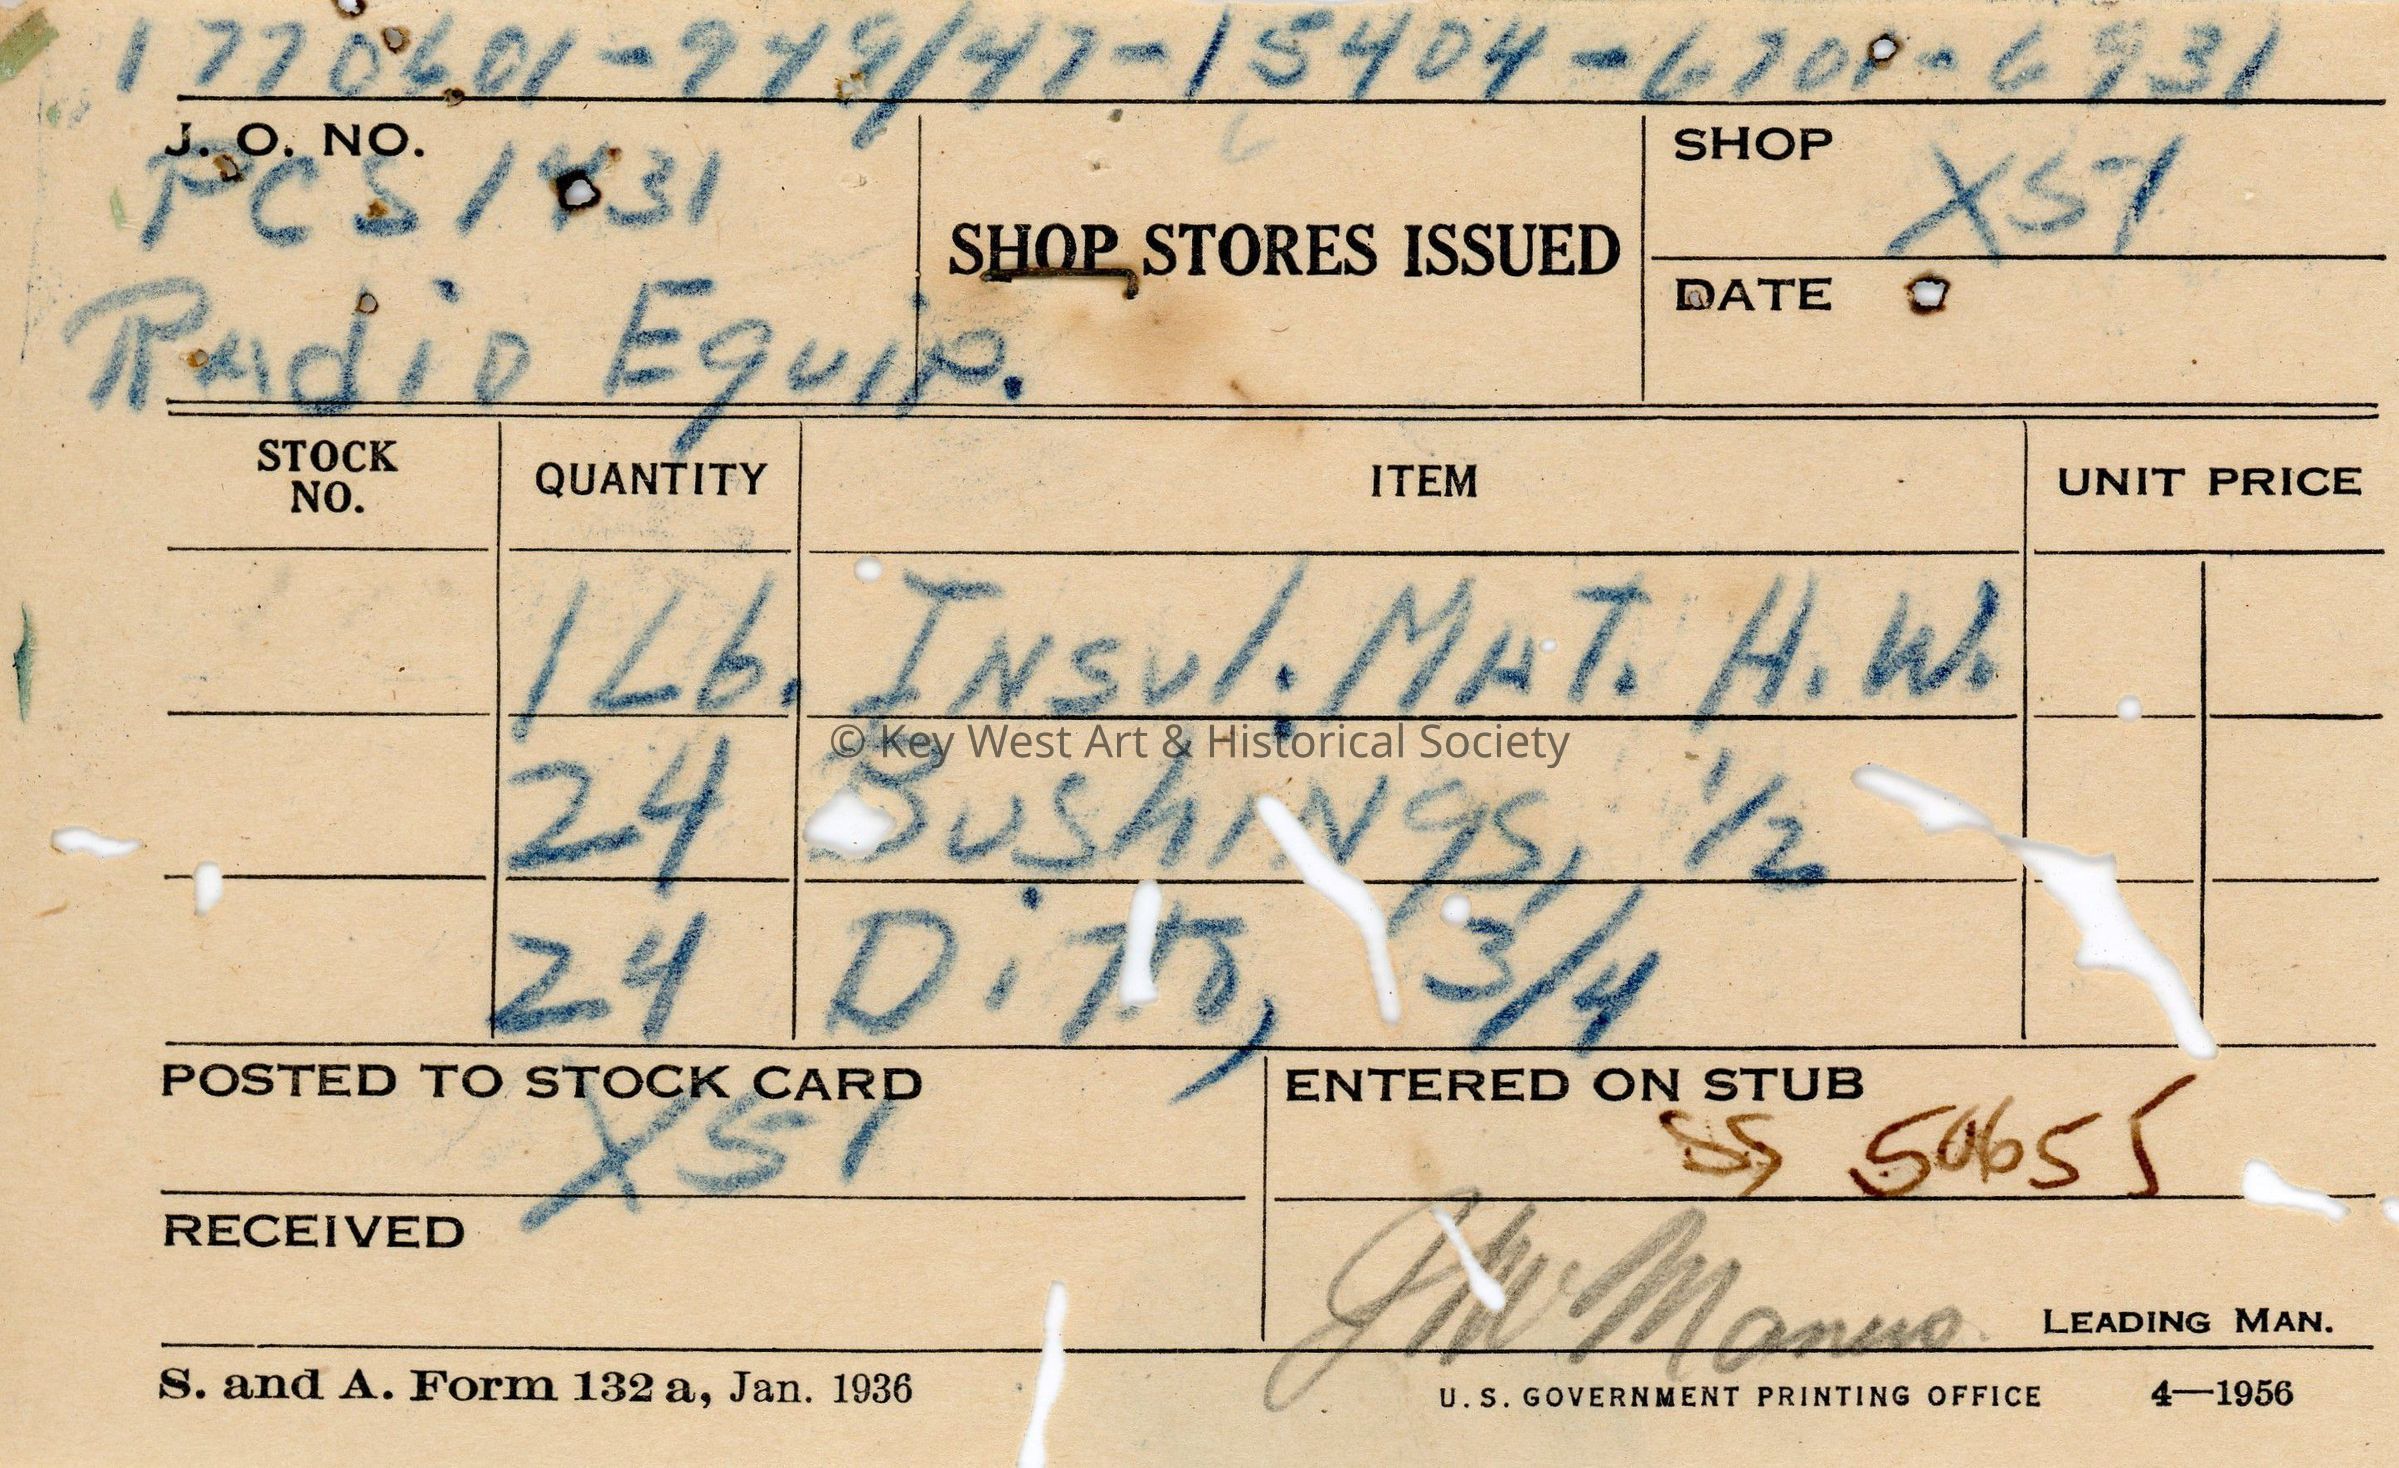 1770601-949/47-15404-6701-6931
J. O. NO.
PCS 1431
Radio Equip.
SHOP STORES ISSUED
SHOP
XS1
DATE
STOCK NO.
QUANTITY
ITEM
UNIT PRICE
1 Lb. Insul. Mat. H. W.
© Key West Art & Historical Society
24 Bushings, 1/2
24 Ditto, 3/4
POSTED TO STOCK CARD
XS1
ENTERED ON STUB
SS
RECEIVED
LEADING MAN.
S. and A. Form 132 a, Jan. 1936
U. S. GOVERNMENT PRINTING OFFICE 4—1956